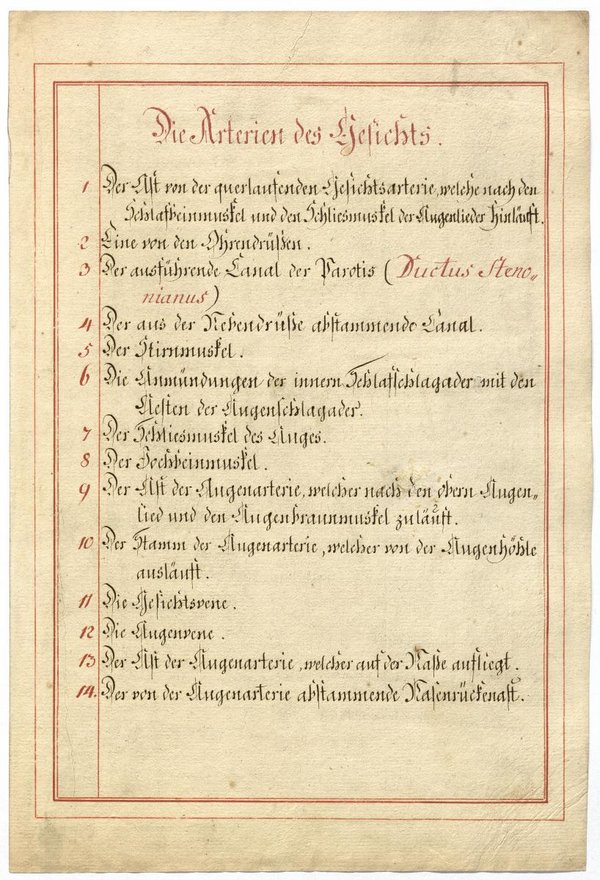 Die Arterien des Gesichts.
1 Der Ast von der querlaufenden Gesichtsarterie, welche nach den
Schlafbeinmuskel und den Schliesmuskel der Augenlieder hinläuft.
2 Eine von den Ohrendrüßen.
3 Der ausführende Canal der Parotis (Ductus Steno-
nianus)
4 Der aus der Nebendrüße abstammende Canal.
5 Der Stirnmuskel.
6 Die Anmündungen der innern Schlafschlagader mit den
Aesten der Augenschlagader.
7 Der Schliesmuskel des Auges.
8 Der Jochbeinmuskel.
9 Der Ast der Augenarterie, welcher nach den obern Augen-
lied und den Augenbraunmuskel zuläuft.
10 Der Stamm der Augenarterie, welcher von der Augenhöhle
ausläuft.
11 Die Gesichtsvene.
12 Die Augenvene.
13 Der Ast der Augenarterie, welcher auf der Naße aufliegt.
14. Der von der Augenarterie abstammende Nasenrückenast.